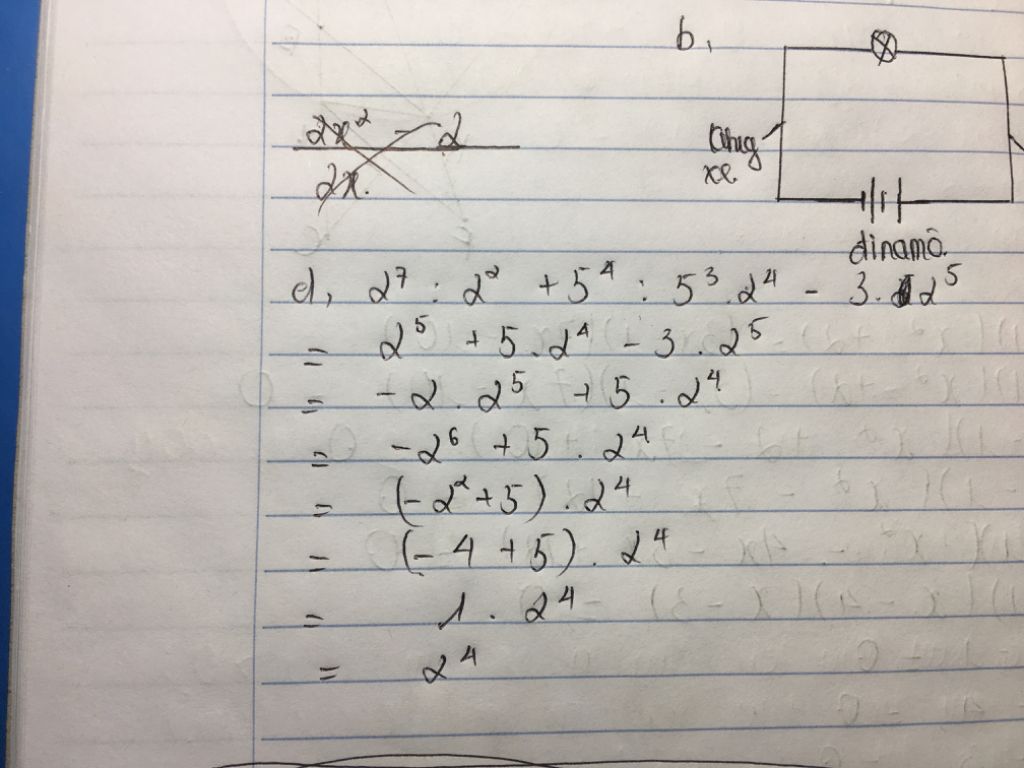 b,
2x² - 2
2x.
xe
dinamô
d, 2⁷ : 2² + 5⁴ : 5³ . 2⁴ - 3 . 2⁵
= 2⁵ + 5 . 2⁴ - 3 . 2⁵
= - 2 . 2⁵ + 5 . 2⁴
= - 2⁶ + 5 . 2⁴
= (- 2² + 5) . 2⁴
= (- 4 + 5) . 2⁴
= 1 . 2⁴
= 2⁴